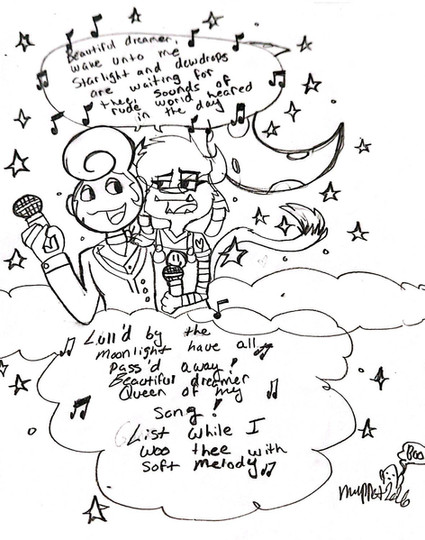 Beautiful dreamer,
wake unto me
Starlight and dewdrops
are waiting for
thee; sounds of
rude world heared
in the day
Lull'd by the
moonlight have all
pass'd away!
Beautiful dreamer
Queen of my
song!
List while I
woo thee with
soft melody
Boo